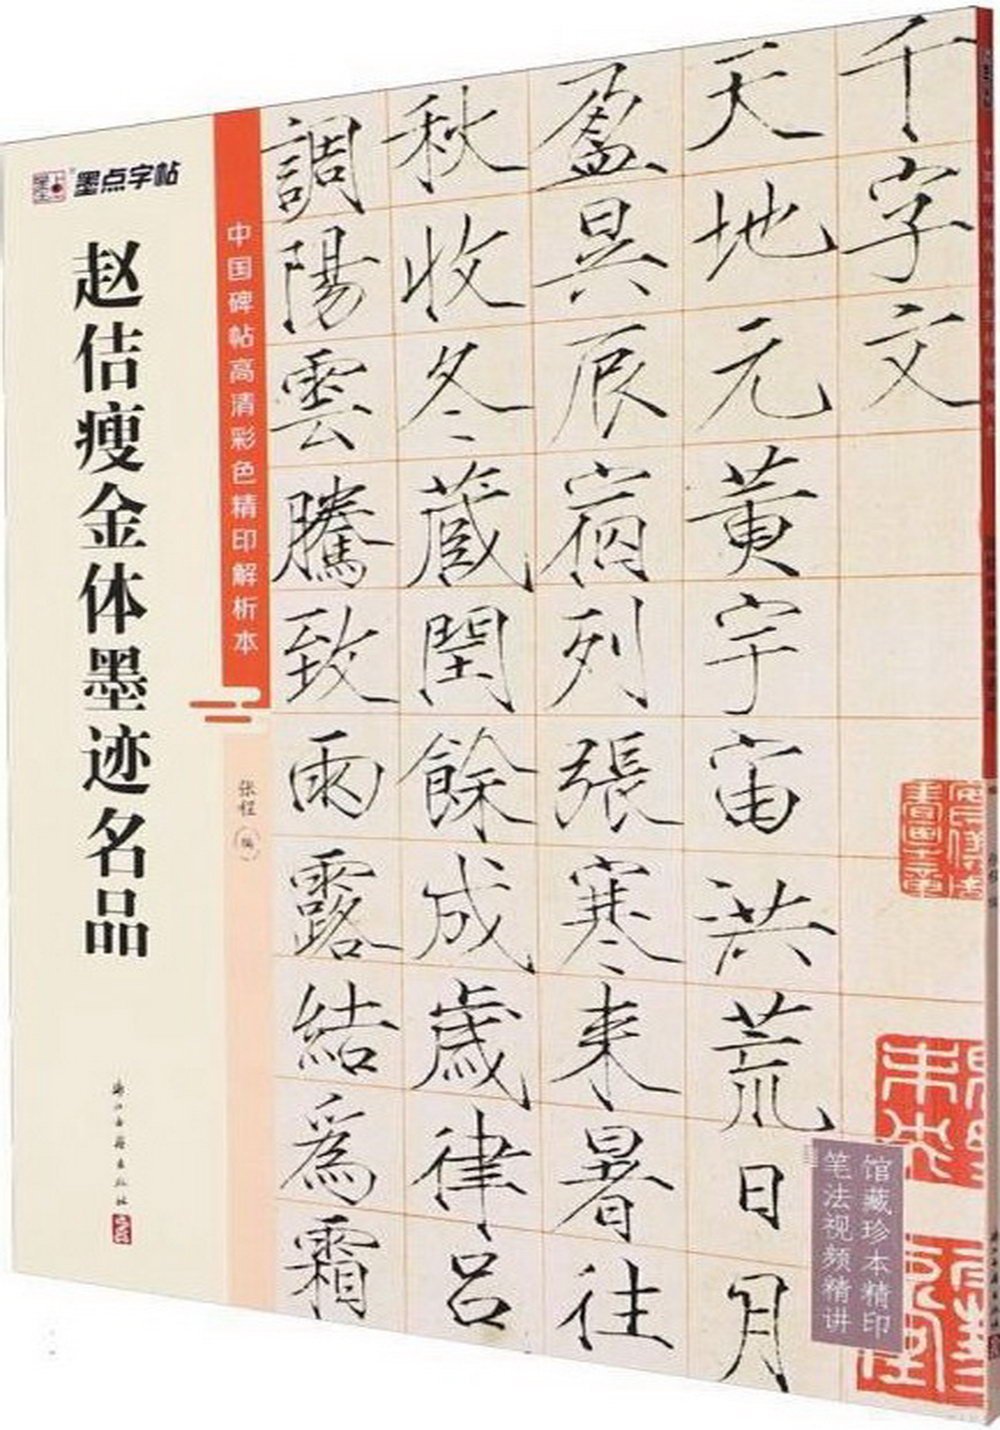 墨点字帖
赵佶瘦金体墨迹名品
中国碑帖高清彩色精印解析本
张程 编
浙江古籍出版社
千字文
天地元黄宇宙洪荒日月
盈昃辰宿列張寒来暑往
秋收冬蔵閏餘成歳律吕
調陽雲騰致雨露結為霜
馆藏珍本精印
笔法视频精讲